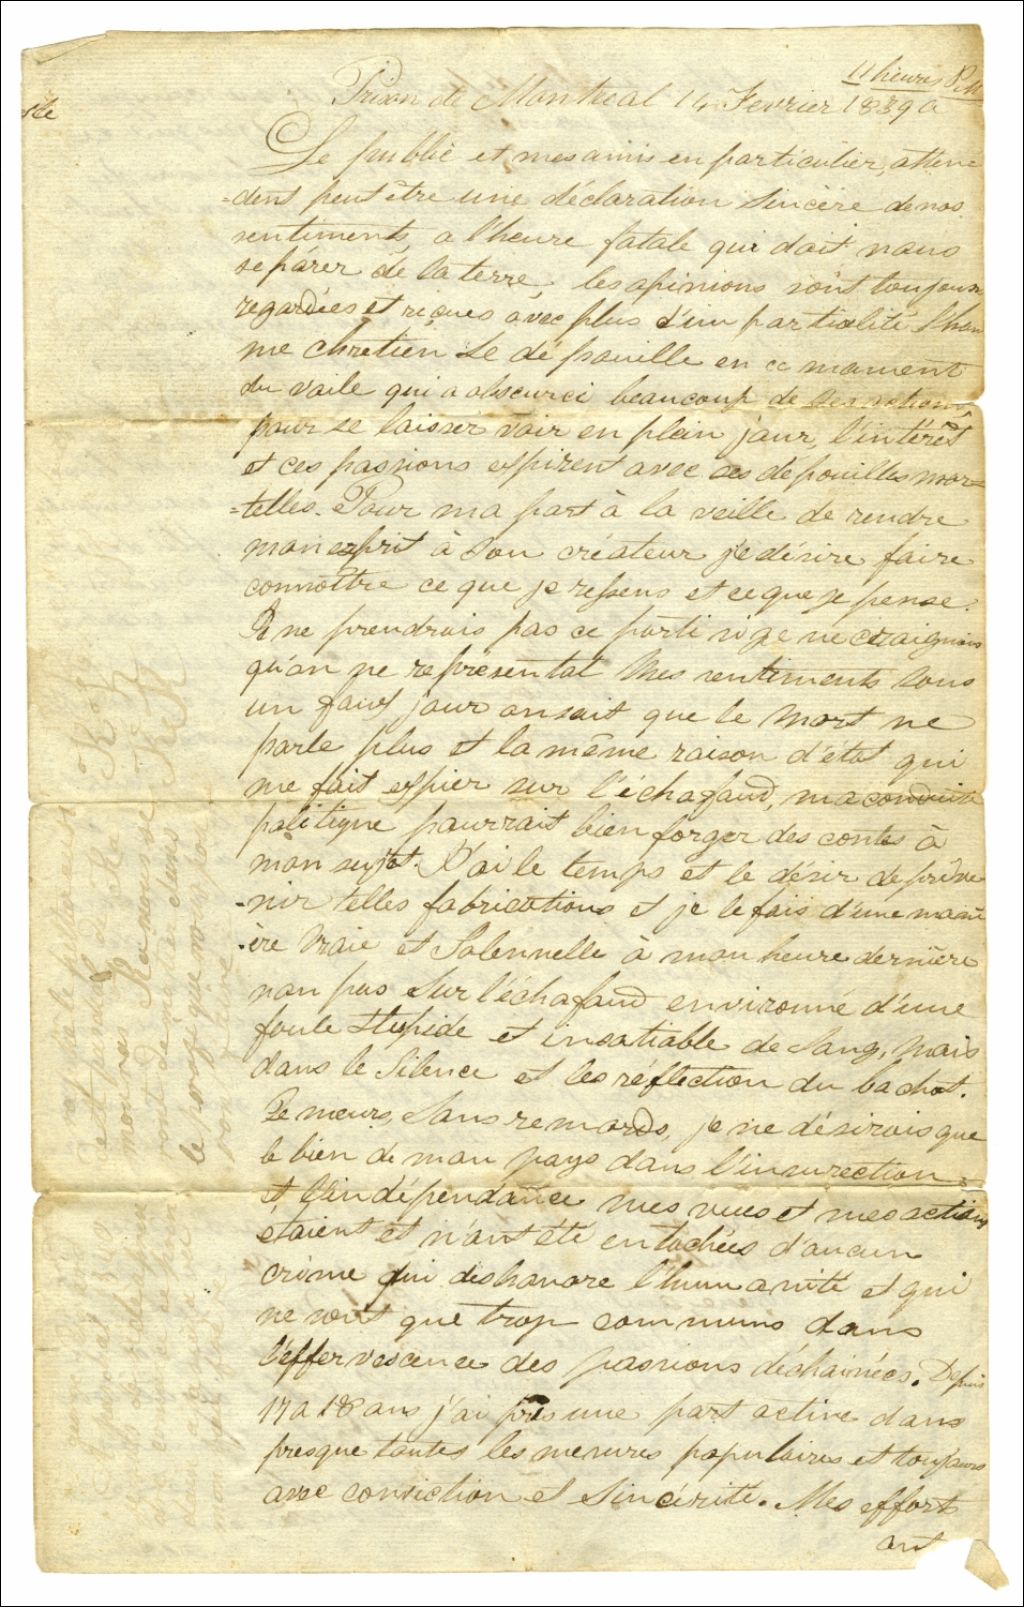 11 heures P.M
Prison de Montreal 14 Fevrier 1839 a
Le public et mes amis en particulier, atten
=dent peut être une déclaration sincère de nos
sentiments, a l'heure fatale qui doit nous
séparer de la terre, les opinions sont toujours
regardées et reçues avec plus d'impartialité l'hom
me chretien se dépouille en ce moment
du voile qui a obscurci beaucoup de ses actions,
pour se laisser voir en plein jour, l'intérêt
et ces passions expirent avec ses dépouilles mor=
=telles. Pour ma part à la veille de rendre
mon esprit à son créateur je désire faire
connoître ce que je ressens et ce que je pense.
Je ne prendrois pas ce parti si je ne craignois
qu'on ne representat mes sentiments sous
un faux jour on sait que le mort ne
parle plus et la même raison d'état qui
me fait expier sur l'échafaud, ma conduite
politique pourrait bien forger des contes à
mon sujet. J'ai le temps et le désir de préve
-nir telles fabrications et je le fais d'une mani
-ère vraie et Solennelle à mon heure dernière
non pas sur l'échafaud environné d'une
foule stupide et insatiable de sang, mais
dans le silence et les réflection du cachot.
Je meurs, sans remords, je ne désirois que
le bien de mon pays dans l'insurection
et l'indépendance mes vues et mes actions
étaient et n'ont été entachées d'aucun
crime qui deshonore l'humanité et qui
ne sont que trop communs dans
l'effervescence des passions déchainées. Depuis
17 a 18 ans j'ai pris une part active dans
presque toutes les mesures populaires et toujours
avec conviction et sincérité. Mes efforts
ont